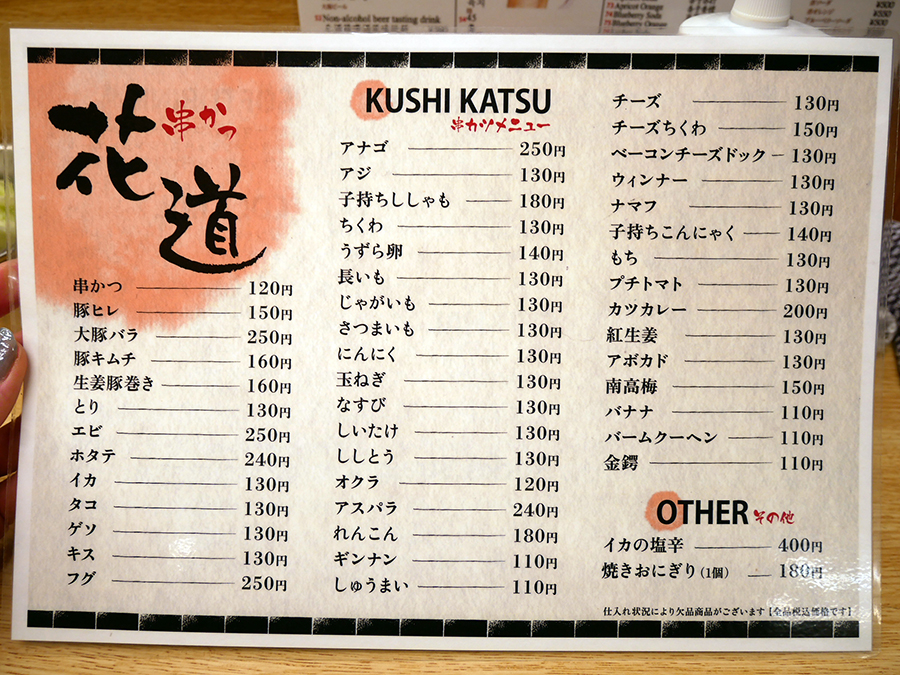 53 Non-alcohol beer tasting drink
73 Apricot Orange
74 Blueberry Soda
75 Blueberry Orange
¥500
¥550
串かつ
花道
串かつ 120円
豚ヒレ 150円
大豚バラ 250円
豚キムチ 160円
生姜豚巻き 160円
とり 130円
エビ 250円
ホタテ 240円
イカ 130円
タコ 130円
ゲソ 130円
キス 130円
フグ 250円
KUSHI KATSU
串カツメニュー
アナゴ 250円
アジ 130円
子持ちししゃも 180円
ちくわ 130円
うずら卵 140円
長いも 130円
じゃがいも 130円
さつまいも 130円
にんにく 130円
玉ねぎ 130円
なすび 130円
しいたけ 130円
ししとう 130円
オクラ 120円
アスパラ 240円
れんこん 180円
ギンナン 110円
しゅうまい 110円
チーズ 130円
チーズちくわ 150円
ベーコンチーズドック 130円
ウィンナー 130円
ナマフ 130円
子持ちこんにゃく 140円
もち 130円
プチトマト 130円
カツカレー 200円
紅生姜 130円
アボカド 130円
南高梅 150円
バナナ 110円
バームクーヘン 110円
金鍔 110円
OTHER その他
イカの塩辛 400円
焼きおにぎり(1個) 180円
仕入れ状況により欠品商品がございます【全品税込価格です】